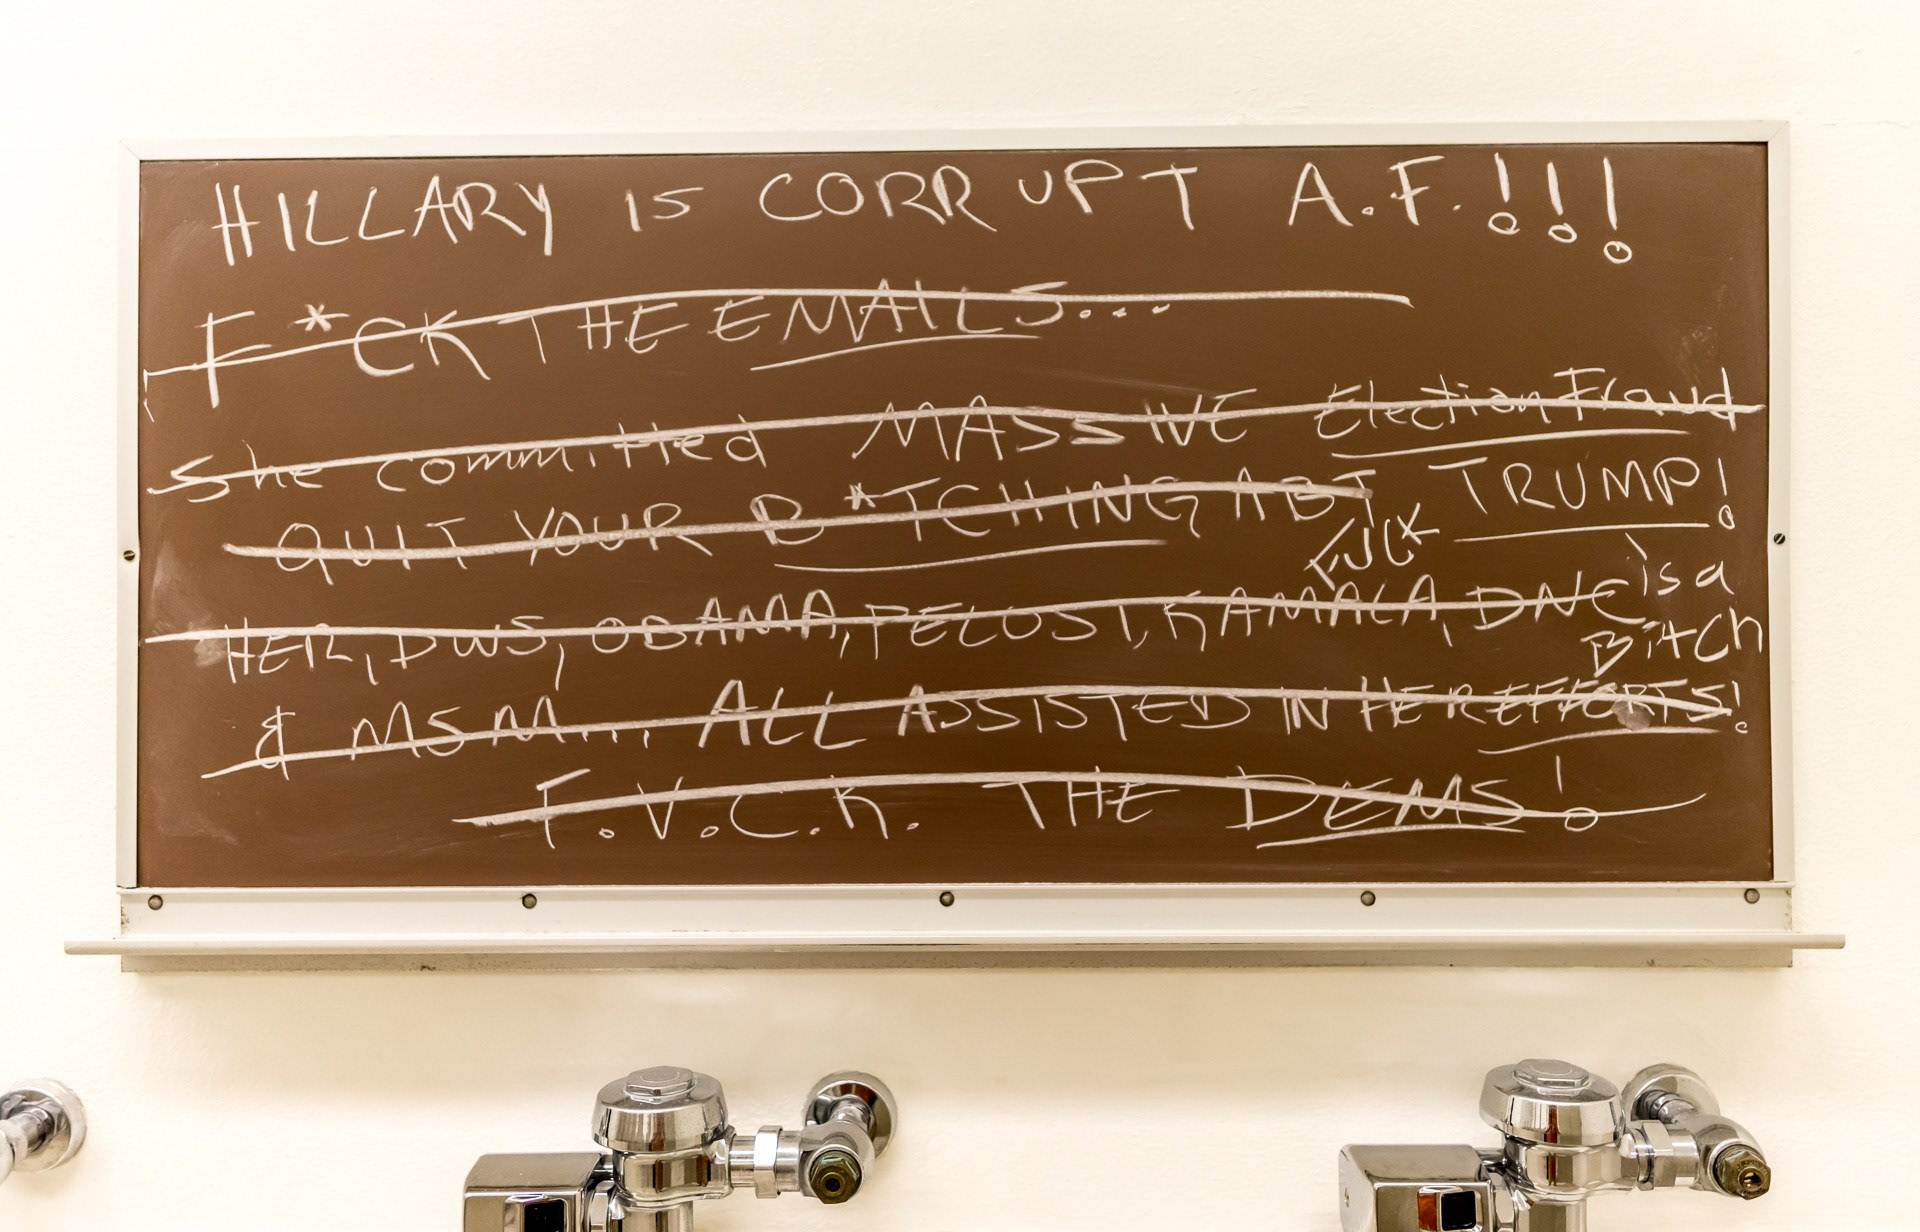 HILLARY IS CORRUPT A.F.!!!
F*CK THE EMAILS...
She committed MASSIVE Election Fraud
QUIT YOUR B*TCHING ABT TRUMP!
FUCK
is a
HER, DWS, OBAMA, PELOSI, KAMALA, DNC
Bitch
& MSM... ALL ASSISTED IN HER EFFORTS!
F.V.C.K. THE DEMS!